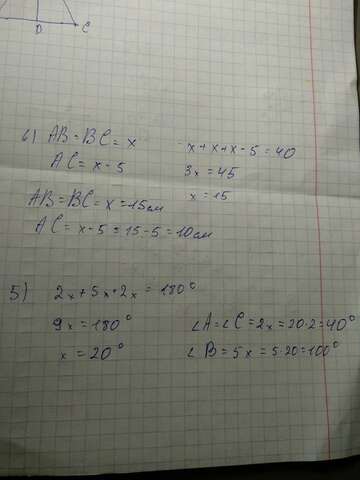 D C
6) AB = BC = x
AC = x - 5
AB = BC = x = 15 см
AC = x - 5 = 15 - 5 = 10 см
x + x + x - 5 = 40
3x = 45
x = 15
5) 2x + 5x + 2x = 180°
9x = 180°
x = 20°
∠A = ∠C = 2x = 20·2 = 40°
∠B = 5x = 5·20 = 100°